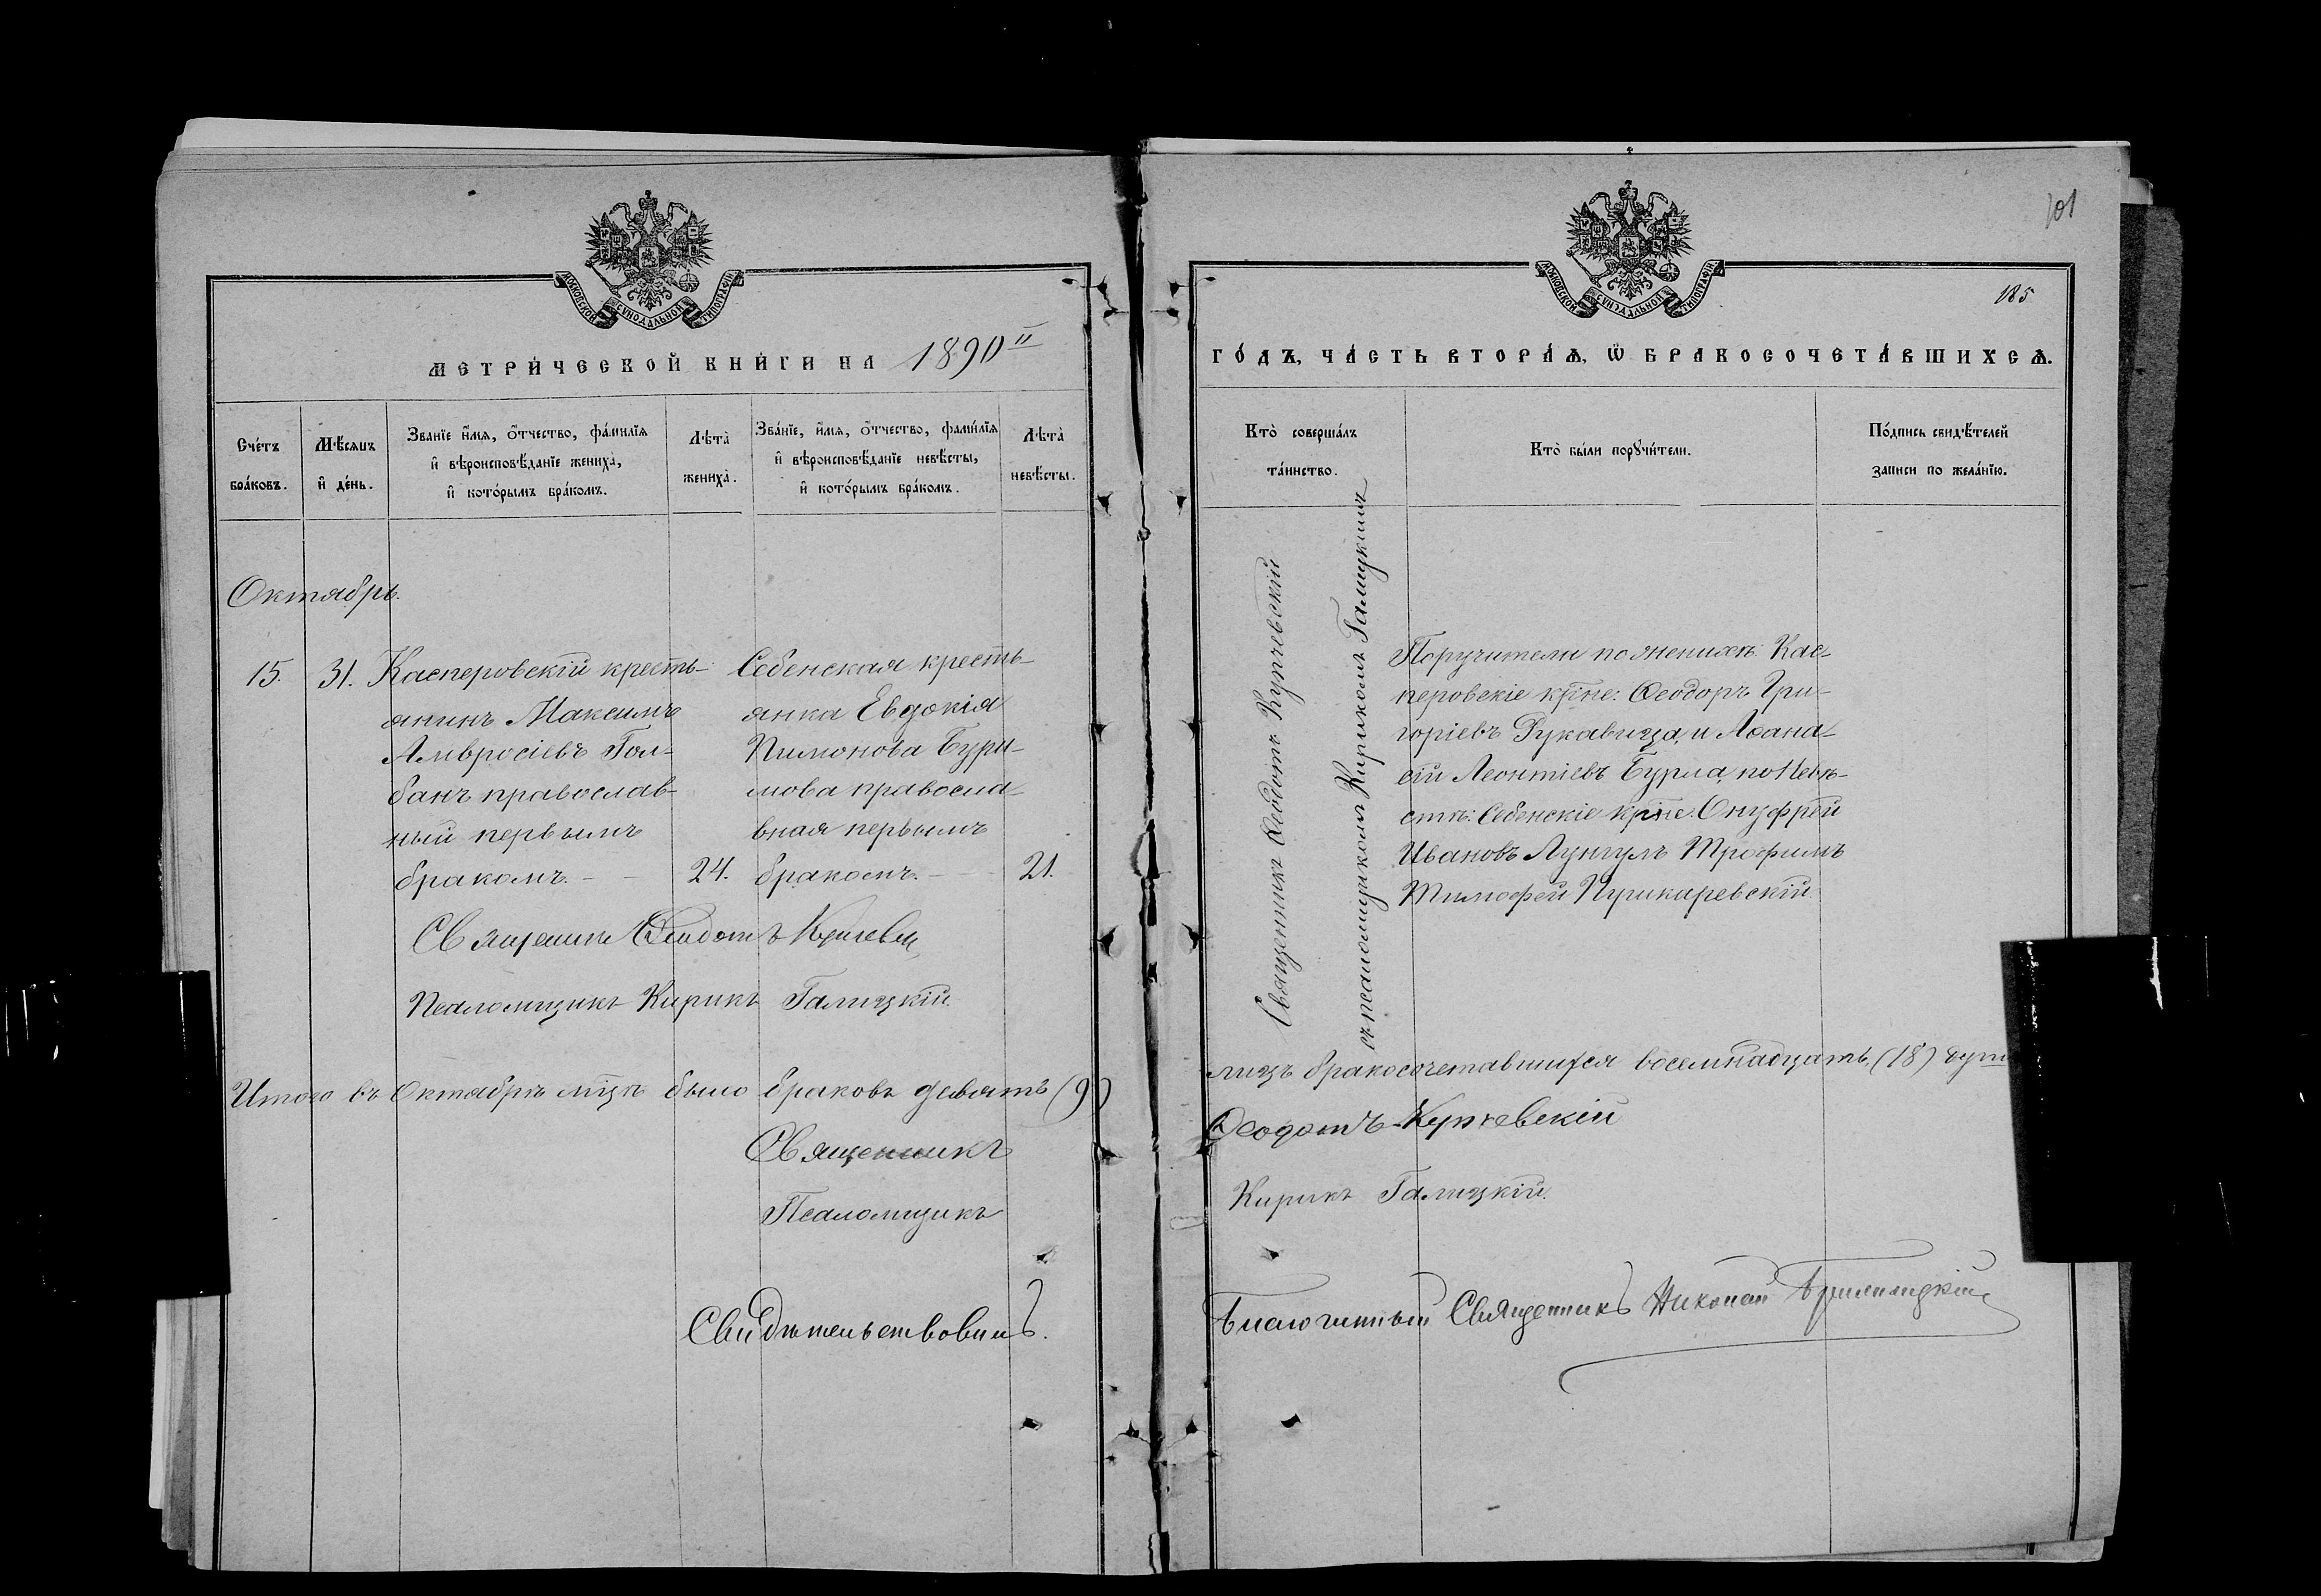 МОСКОВСКОЙ СѴНОДАЛЬНОЙ ТИПОГРАФІИ
МЕТРИ́ЧЕСКОЙ КНИ́ГИ НА 1890
Сче́тъ бра́ковъ.
Мѣ́сяцъ и҆ де́нь.
Зва́нїе и҆́мѧ, ѻ҆́тчество, фами́лїѧ
и҆ вѣроисповѣ́данїе жениха̀,
и҆ кото́рымъ бра́комъ.
Лѣта̀ жениха̀.
Зва́нїе, и҆́мѧ, ѻ҆́тчество, фами́лїѧ
и҆ вѣроисповѣ́данїе невѣ́сты,
и҆ кото́рымъ бра́комъ.
Лѣта̀ невѣ́сты.
Октябрь.
15.
31.
Касперовскій кресть-
янинъ Максимъ
Амвросіевъ Гол-
банъ православ-
ный первымъ
бракомъ.
24.
Себенская кресть-
янка Евдокія
Пимонова Бури-
мова правосла-
вная первымъ
бракомъ.
21.
Священникъ Ѳеодотъ
Псаломщикъ Кирикъ Галицкій.
Итого въ Октябрѣ мцѣ было браковъ девять (9)
Священникъ
Псаломщикъ
Свидѣтельствовалъ.
101
185
МОСКОВСКОЙ СѴНОДАЛЬНОЙ ТИПОГРАФІИ
ГО́ДЪ, ЧА́СТЬ ВТОРА́Ѧ, Ѽ БРАКОСОЧЕТА́ВШИХСѦ.
Кто̀ соверша́лъ
та́инство.
Кто̀ бы́ли порꙋчи́тели.
По́дпись свидѣ́телей
записи по жела́нїю.
Священникъ Ѳеодотъ Купчевскій
съ псаломщикомъ Кирикомъ Галицкимъ
Поручители по женихѣ: Кас-
перовскіе кр̃не: Ѳеодоръ Гри-
горіевъ Рукавица, и Аѳана-
сій Леонтіевъ Бурла, по Невѣ-
стѣ: Себенскіе кр̃не: Онуфрей
Ивановъ Лунгулъ Трофимъ
Тимофей Пушкаревскій.
лицъ бракосочетавшихся восемнадцать, (18)
Ѳеодотъ Купчевскій
Кирикъ Галицкій.
Благочинный Священникъ Николай